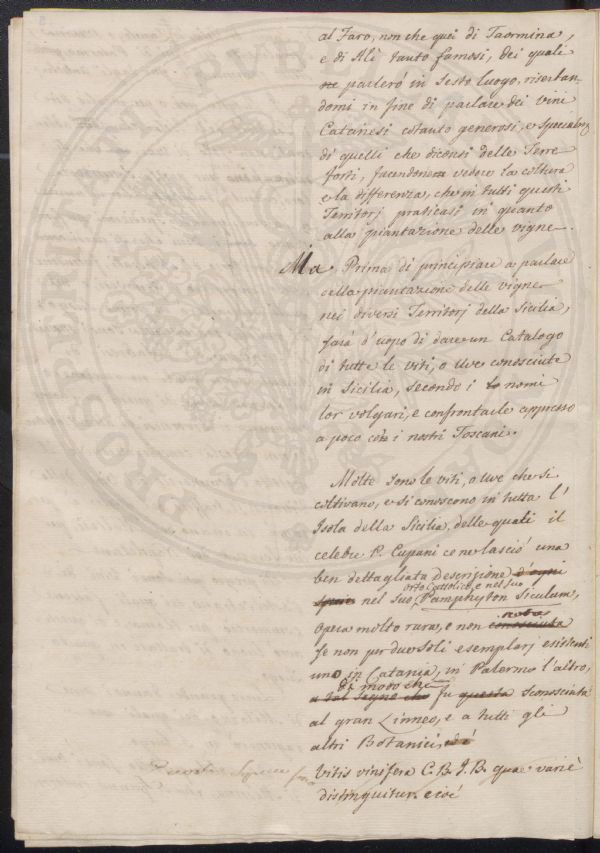 al Faro, non che quei di Taormina,
e di Alì tanto famosi, dei quali
ne parlerò in Sesto luogo, riserban-
domi in fine di parlare dei vini
Catanesi cotanto generosi, e
di quelli che diconsi delle Terre
forti, facendone vedere la coltura
e la differenza, che in tutti questi
Territorj praticasi in quanto
alla piantazione delle vigne.
Ma Prima di principiare a parlare
della piantazione delle vigne
nei diversi Territorj della Sicilia,
farà d'uopo di dare un Catalogo
di tutte le viti, o uve conosciute
in Sicilia, secondo i lo nomi
lor volgari, e confrontarle appresso
a poco con i nostri Toscani.
Molte sono le viti, o uve che si
coltivano, e si conoscono in tutta l'
Isola della Sicilia, delle quali il
celebre P. Cupani ce ne lasciò una
ben dettagliata descrizione d'ogni
Orto Cattolico, e nel suo
specie nel suo Pamphyton Siculum,
nota
Opera molto rara, e non conosciuta
se non per due soli esemplarj esistenti
uno in Catania, in Palermo l'altro,
di modo che
a tal segno che fu questa sconosciuta
al gran Linneo, e a tutti gli
altri Botanici,
Vitis vinifera C. B. J. B. quae varie
distinguitur cioè